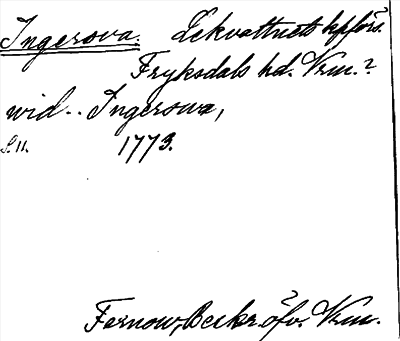 Ingerova. Lekvattnets kpförs.
Fryksdals hd. Vrm.?
wid .. Ingerowa,
S. 11. 1773.
Fernow, Beskr. öfv. Vrm.